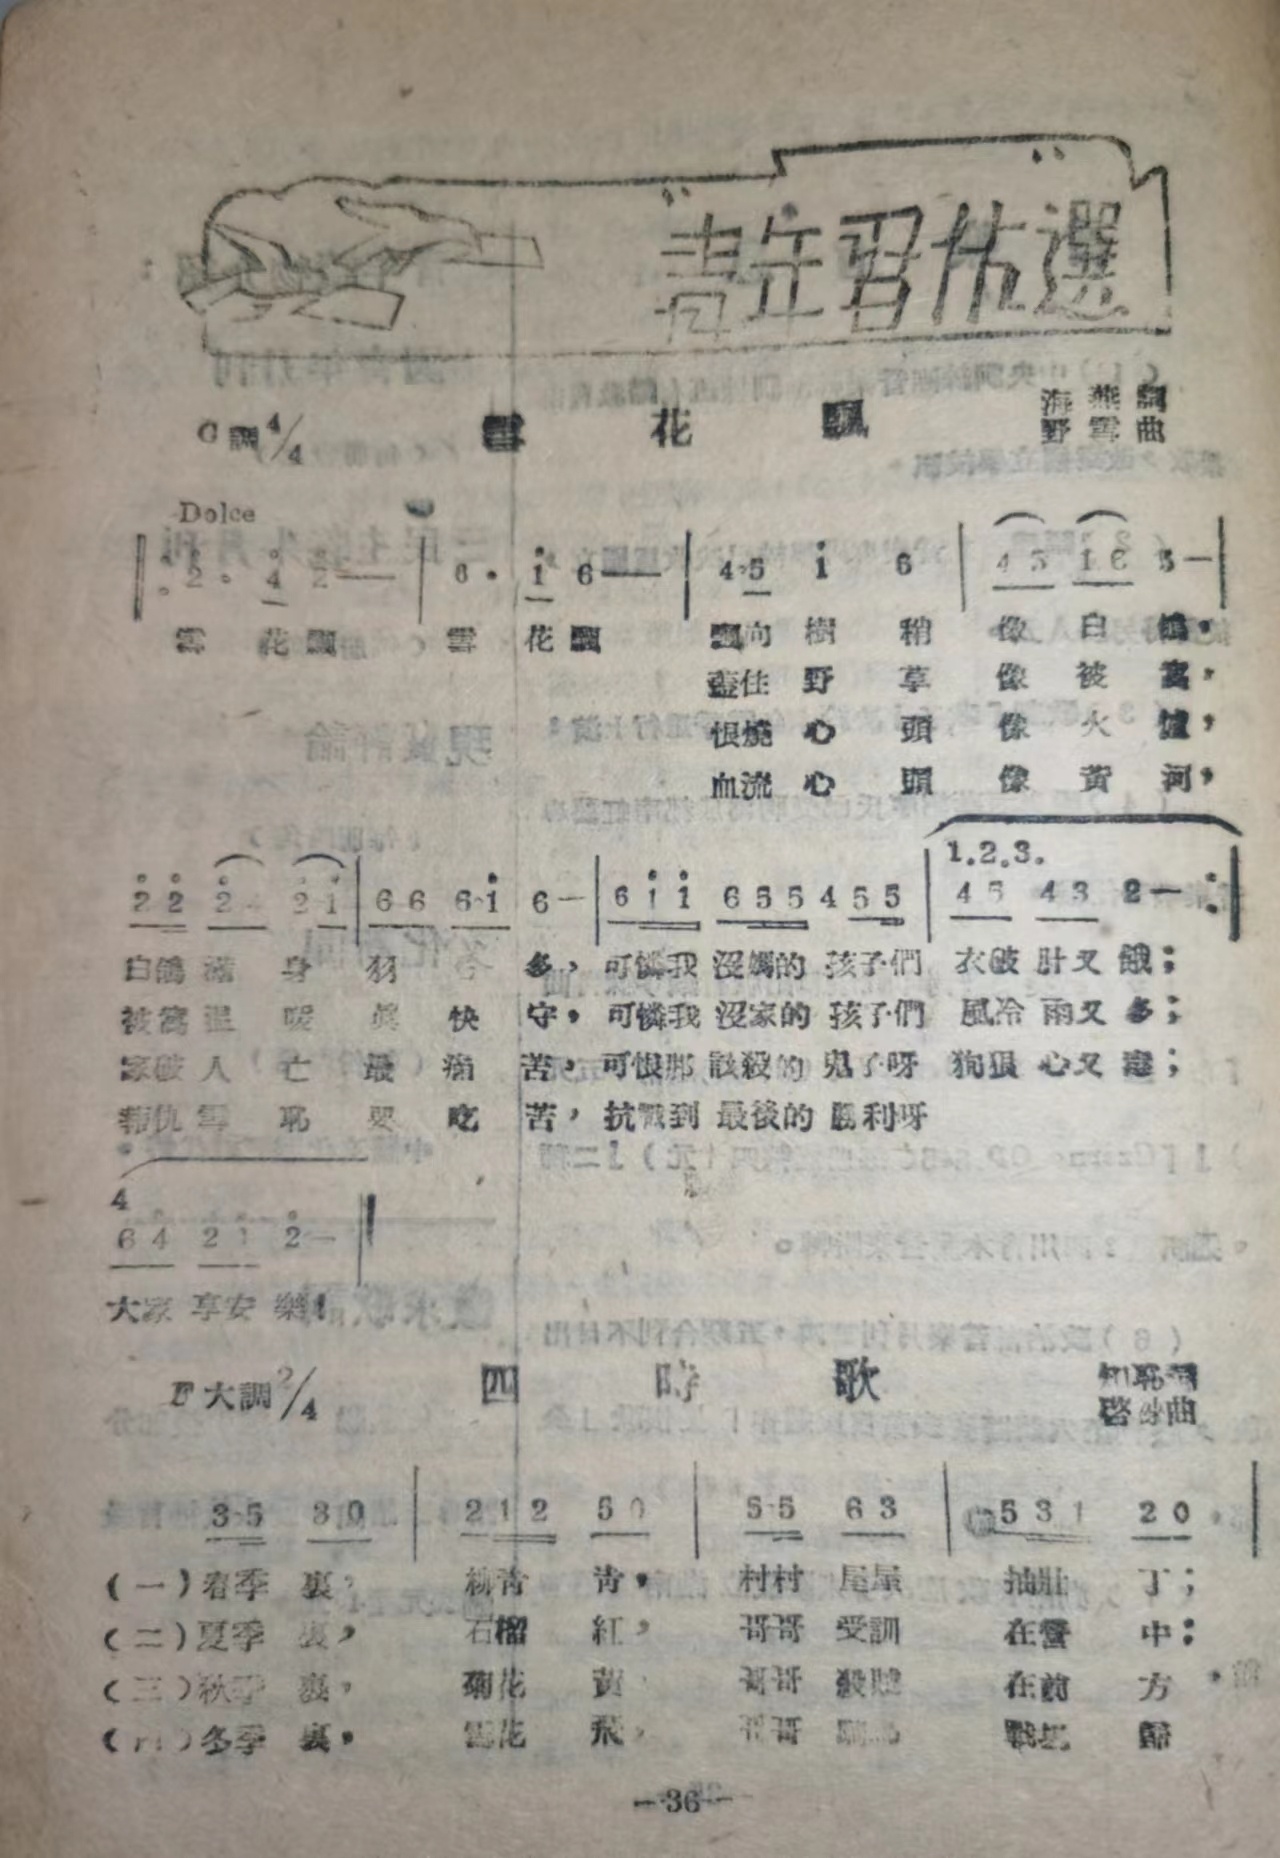 青年習作選
C調4/4 雪花飄 海燕詞
野雪曲
Dolce
2· 4 2— 6· 1 6— 4·5 1 6 45 16 5—
雪 花飄 雪 花飄 飄向樹稍像白鵝，
蓋住野草像被窩，
恨燒心頭像火爐，
血流心頭像黃河，
1.2.3.
22 24 21 66 6·1 6— 611 655 455 45 43 2—
白鵝滿身羽 多，可憐我沒媽的孩子們 衣破肚又餓；
被窩温暖眞快守，可憐我沒家的孩子們 風冷雨又多；
家破人亡最痛苦，可恨那該殺的鬼子呀 狗狠心又惡；
報仇雪恥要吃苦，抗戰到最後的勝利呀
4
64 21 2—
大家享安樂！
F大調2/4 四時歌 知恥詞
曲
3·5 30 212 50 5·5 63 531 20
（一）春季裏，柳青青，村村屋屋抽壯丁；
（二）夏季裏，石榴紅，哥哥受訓在營中；
（三）秋季裏，菊花黃 哥哥殺賊在前方
（四）冬季裏，雪花飛，哥哥騎馬戰場歸
—36—